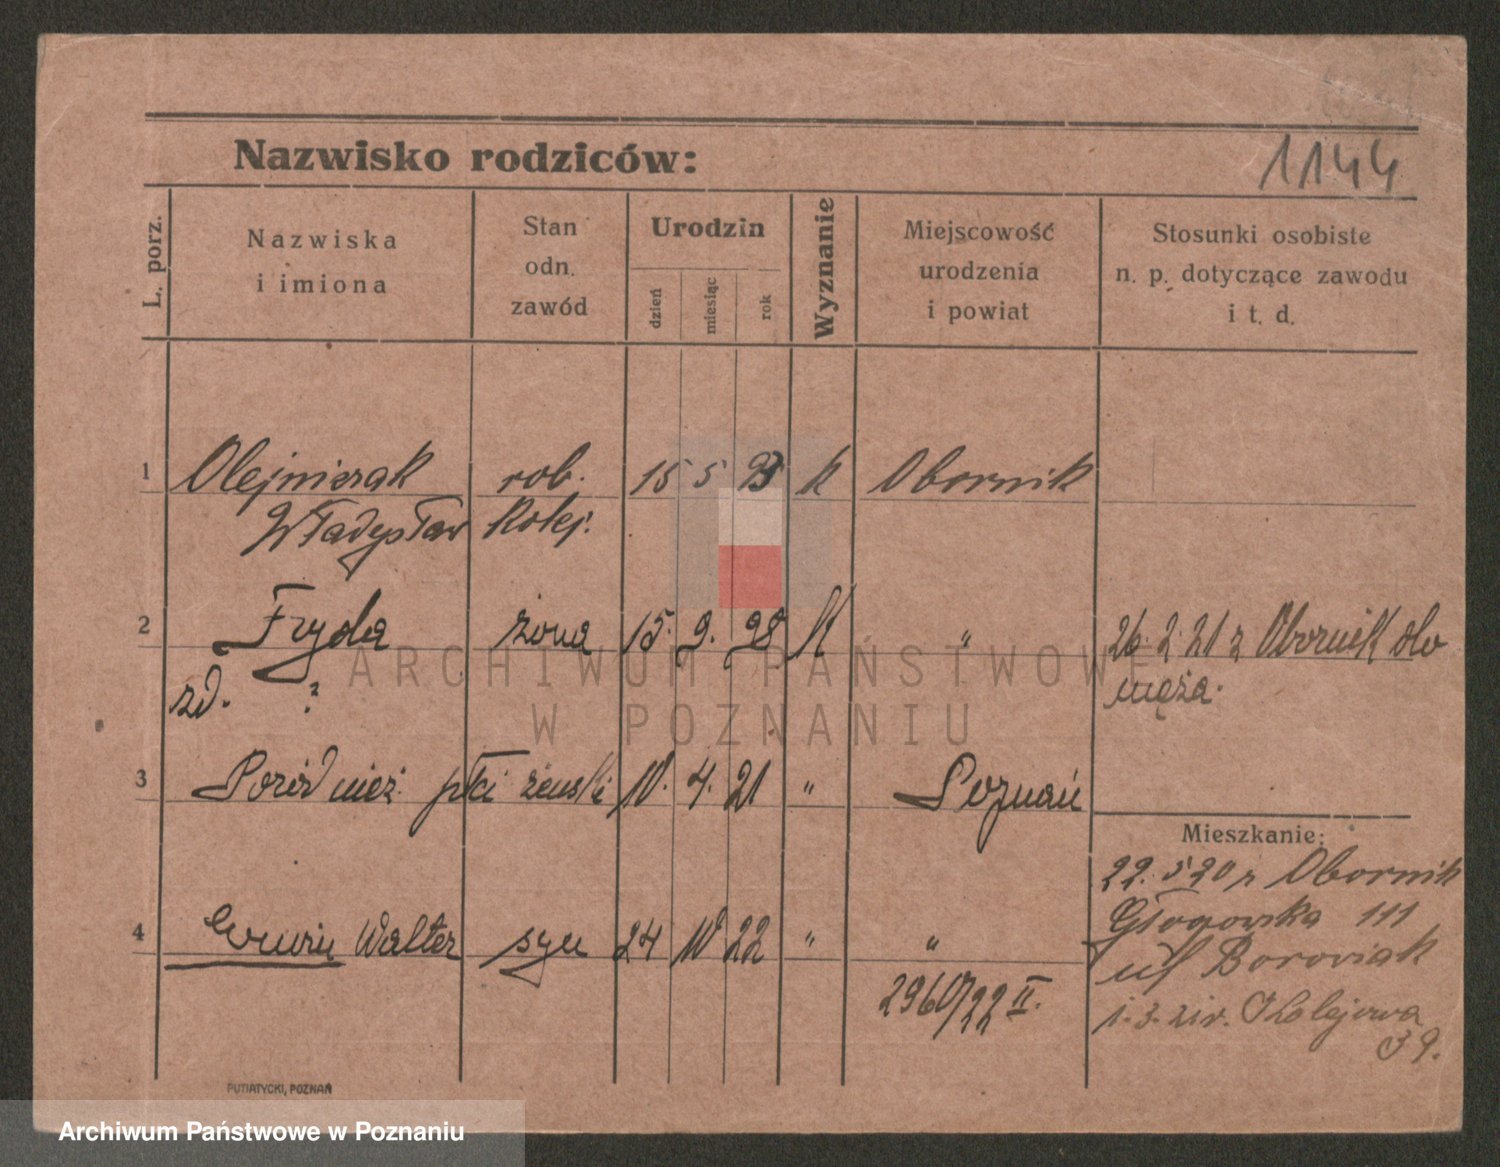 Nazwisko rodziców:
1144
L. porz.
Nazwiska
i imiona
Stan
odn.
zawód
Urodzin
dzień
miesiąc
rok
Wyznanie
Miejscowość
urodzenia
i powiat
Stosunki osobiste
n. p. dotyczące zawodu
i t. d.
1 Olejniczak rob. 15 5 93 k Obornik
Władysław Kolej.
2 Fryda żona 15. 9. 98 k " 26.2.21 z Obornik do
zd. ? męża.
3 płci żeński 10. 4. 21 " Poznań
Mieszkanie:
22.5 20 z Obornik
Głogowska 111
4 Walter syn 24 10 22 " "
Boroviak
2960/22 II.
Kolejowa
39.
PUTIATYCKI, POZNAŃ
ARCHIWUM PAŃSTWOWE
W POZNANIU
Archiwum Państwowe w Poznaniu